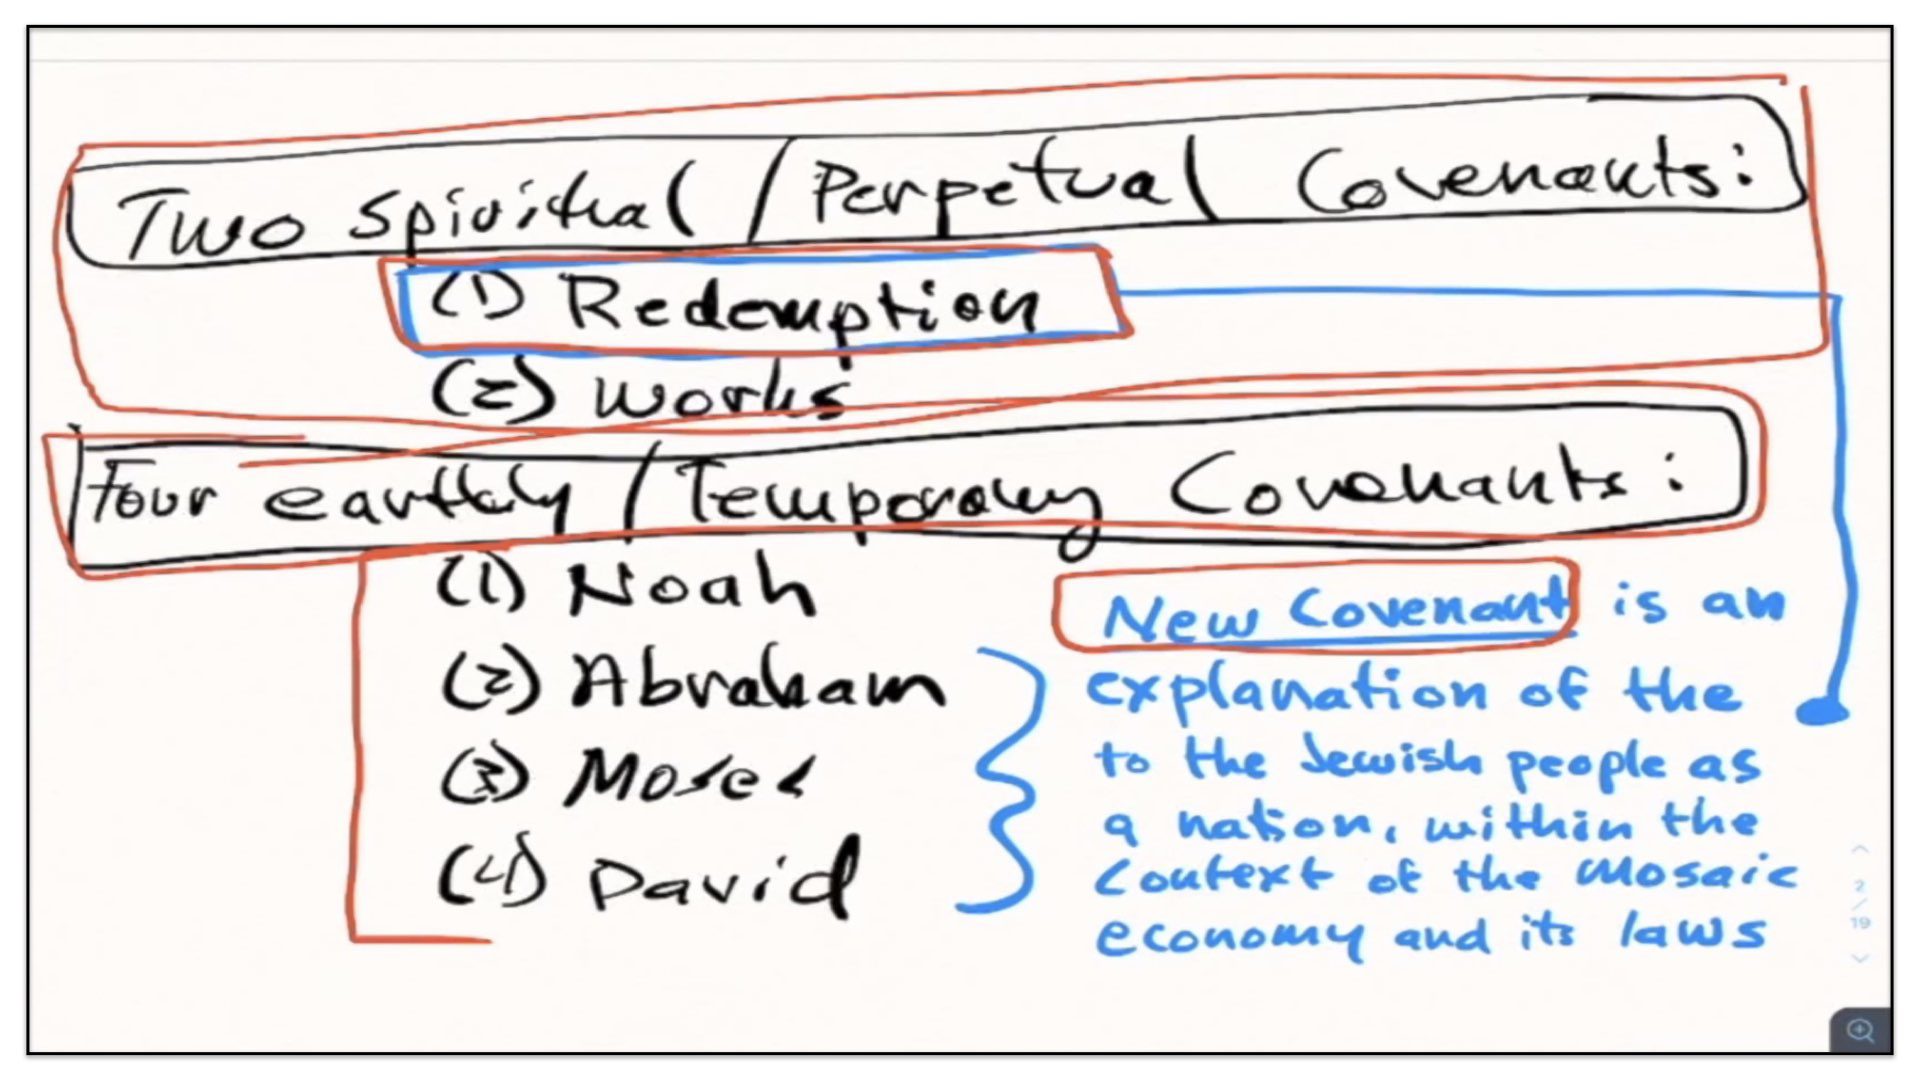 Two Spiritual / Perpetual Covenants:
(1) Redemption
(2) Works
Four earthly / Temporary Covenants:
(1) Noah
(2) Abraham
(3) Moses
(4) David
New Covenant is an
explanation of the
to the Jewish people as
a nation, within the
Context of the Mosaic
economy and its laws
2
/
19